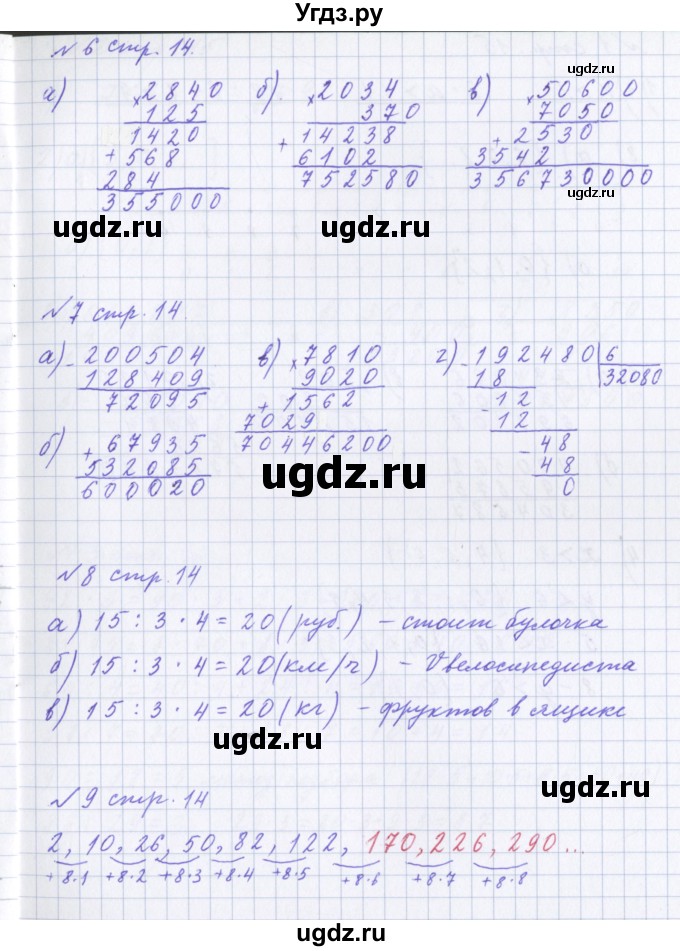 Угдз.ру
№ 6 стр. 14.
а) × 2840
125
1420
+ 568
284
355000
б). × 2034
370
+ 14238
6102
752580
в) × 50600
7050
+ 2530
3542
356730000
ugdz.ru
ugdz.ru
ugdz.ru
ugdz.ru
№ 7 стр. 14.
а) - 200504
128409
72095
б) + 67935
532085
600020
в) × 7810
9020
+ 1562
7029
70446200
г) - 192480 | 6
18 | 32080
- 12
12
- 48
48
0
ugdz.ru
ugdz.ru
№ 8 стр. 14
а) 15 : 3 · 4 = 20 (руб.) – стоит булочка
б) 15 : 3 · 4 = 20 (км/ч) – V велосипедиста
в) 15 : 3 · 4 = 20 (кг) – фруктов в ящике
ugdz.ru
ugdz.ru
№ 9 стр. 14
2, 10, 26, 50, 82, 122, 170, 226, 290...
+8·1 +8·2 +8·3 +8·4 +8·5 +8·6 +8·7 +8·8
ugdz.ru
ugdz.ru